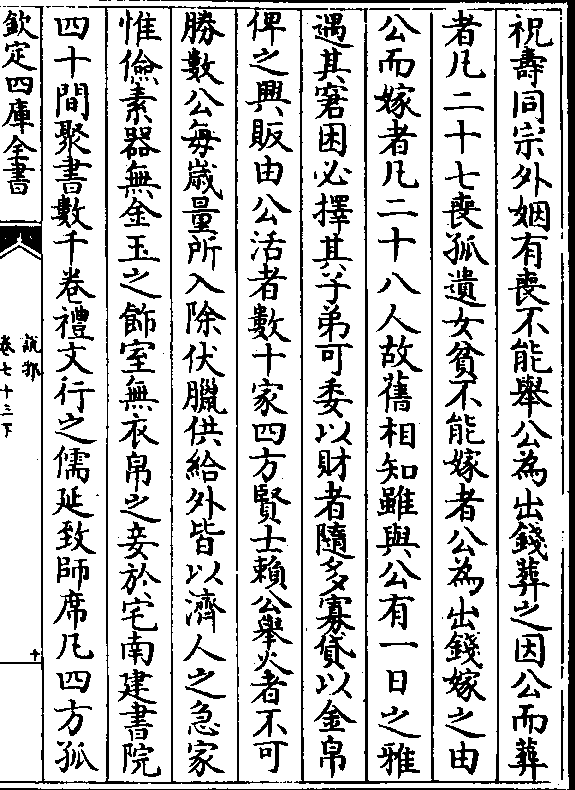 祝壽同宗外姻有喪不能舉公為出錢葬之因公而葬
者凡二十七喪孤遺女貧不能嫁者公為出錢嫁之由
公而嫁者凡二十八人故舊相知雖與公有一日之雅
遇其窘困必擇其子弟可委以財者隨多寡貸以金帛
俾之興販由公活者數十家四方賢士賴公舉火者不可
勝數公每歲量所入除伏臘供給外皆以濟人之急家
惟儉素器無金玉之飾室無衣帛之妾於宅南建書院
四十間聚書數千卷禮文行之儒延致師席凡四方孤
欽定四庫全書
說郛
卷七十三下
十